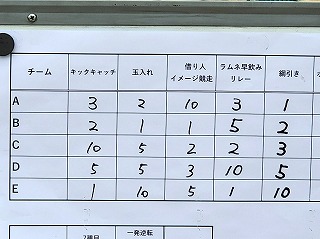 チーム キックキャッチ 玉入れ 借り人イメージ競走 ラムネ早飲みリレー 綱引き
A 3 2 10 3 1
B 2 1 1 5 2
C 10 5 2 2 3
D 5 5 3 10 5
E 1 10 5 1 10
7種目 一発逆転